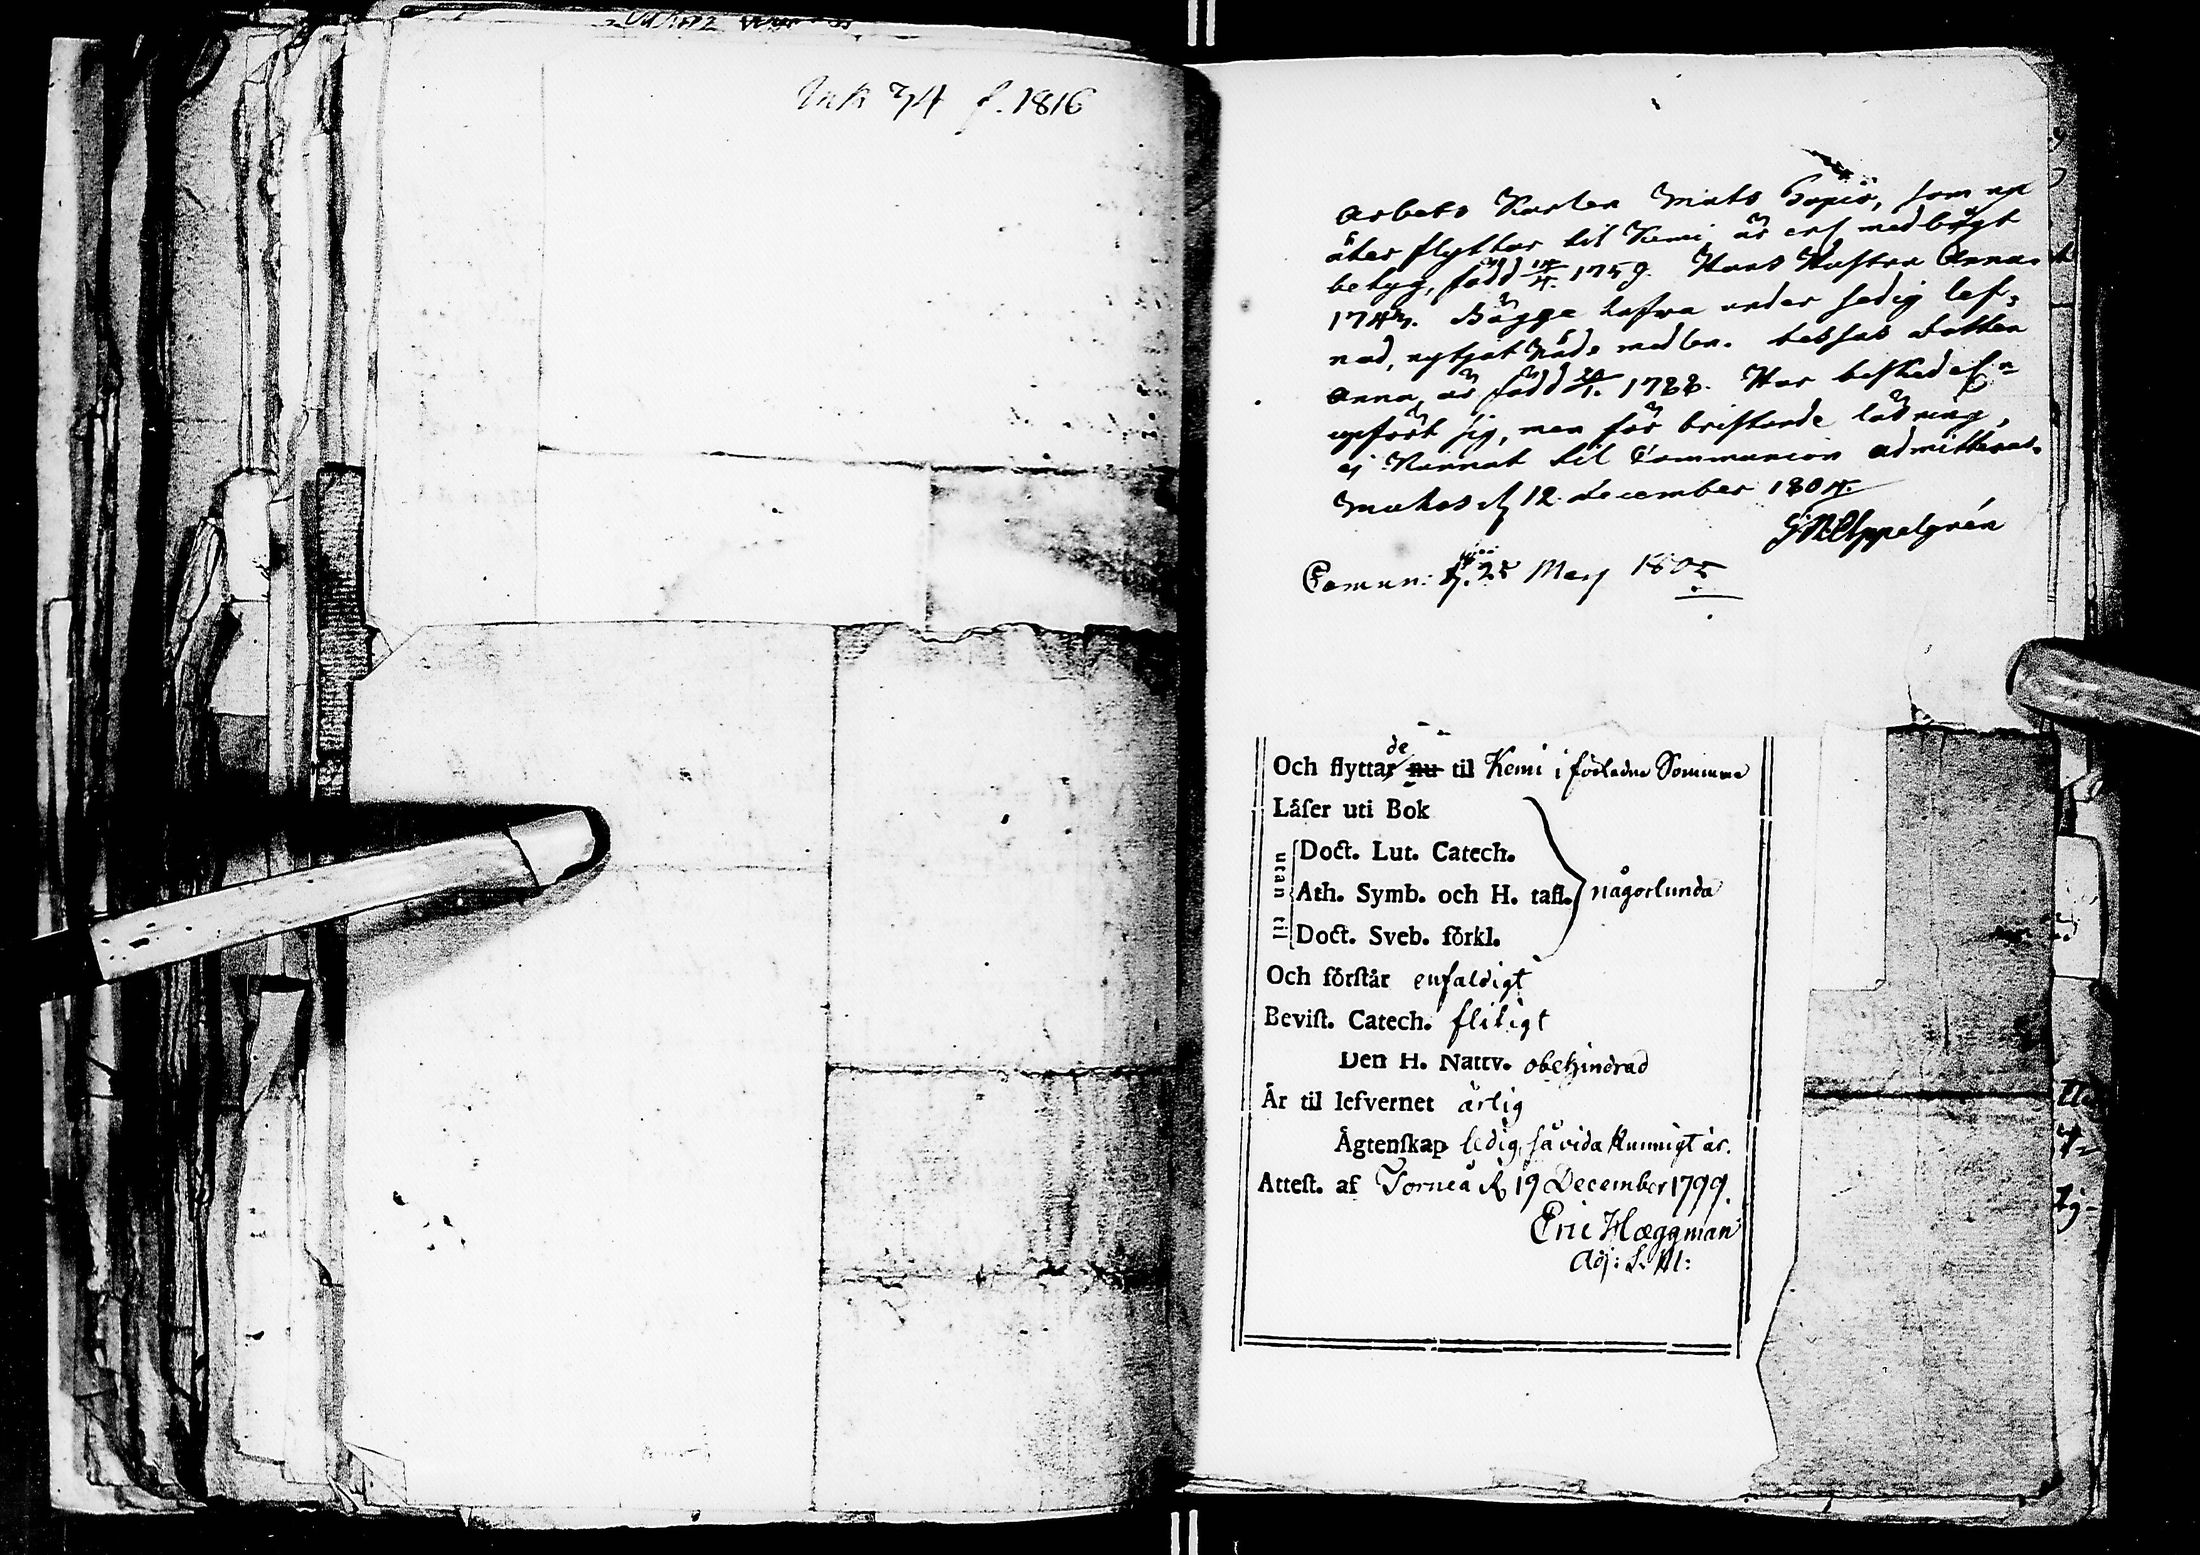 Ink 74 f. 1816
Arbets Karlen Mats Hapis, som nu
åter flyttar til Kemi är enl. medbragt
betyg, född 14/4. 1759. Hans Hustru Anna.
1743. Bägge hafva under sedig lef,
nad, nytjat Nåde medlen. Dessas Dotter
Anna, är född 20/1. 1788. Har beskedel=n
upfört sig, men för bristande läsning,
ej kunnat til Communion admitteras.
Muhos d. 12 December 1804.
Appelgrén
Comun: d. 25 Maj 1805
Och flyttar de nu til Kemi i förledne Somma
Läſer uti Bok
utan til
Doct. Lut. Catech.
Ath. Symb. och H. tafl. någorlunda
Doct. Sveb. förkl.
Och förſtår enfaldigt
Beviſt. Catech. flitigt
Den H. Nattv. obehindrad
Är til lefvernet ärlig
Ägtenſkap ledig, så vida kunnigt är.
Atteſt. af Torneå d. 19 December 1799.
Eric Hæggman
Adj: S. M: